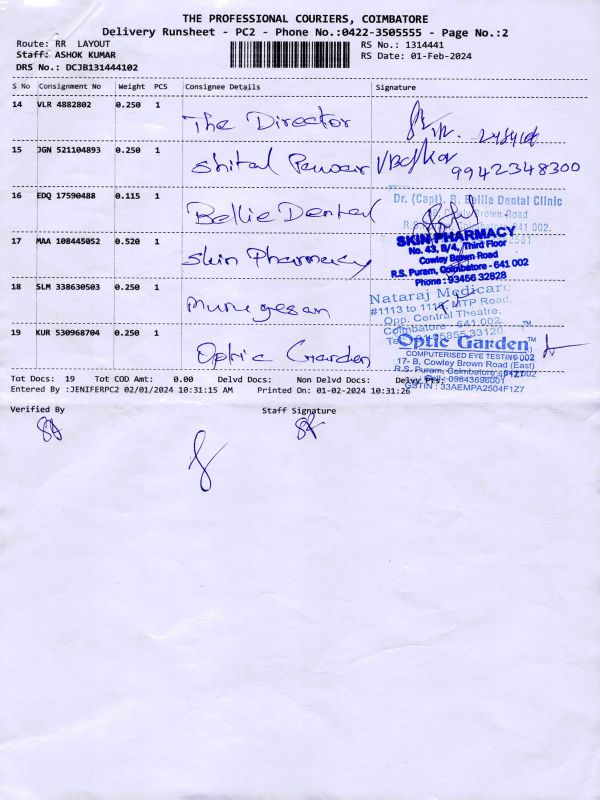 THE PROFESSIONAL COURIERS, COIMBATORE
Delivery Runsheet - PC2 - Phone No.:0422-3505555 - Page No.:2
Route: RR LAYOUT
RS No.: 1314441
Staff: ASHOK KUMAR
RS Date: 01-Feb-2024
DRS No.: DCJB131444102
S No Consignment No Weight PCS Consignee Details Signature
14 VLR 4882802 0.250 1 The Director
15 JGN 521104893 0.250 1 Shital Pawar
9942348300
16 EDQ 17590488 0.115 1 Bellie Dental
Dr. (Capt). B. Bellie Dental Clinic
Cowley Brown Road
17 MAA 108445052 0.520 1 Skin Pharmacy
SKIN PHARMACY
No. 43, B/4, Third Floor
Cowley Brown Road
R.S. Puram, Coimbatore - 641 002
Phone : 93456 32828
18 SLM 338630503 0.250 1 Murugesan
Nataraj Medicare
#1113 to 1116, MTP Road,
Opp. Central Theatre,
Coimbatore - 641 002.
19 KUR 530968704 0.250 1 Optic Garden
Optic Garden™
COMPUTERISED EYE TESTING
17- B, Cowley Brown Road (East)
R.S. Puram, Coimbatore
GSTIN : 33AEMPA2504F1Z7
Tot Docs: 19 Tot COD Amt: 0.00 Delvd Docs: Non Delvd Docs: Delvy Pts:
Entered By :JENIFERPC2 02/01/2024 10:31:15 AM Printed On: 01-02-2024 10:31:26
Verified By Staff Signature